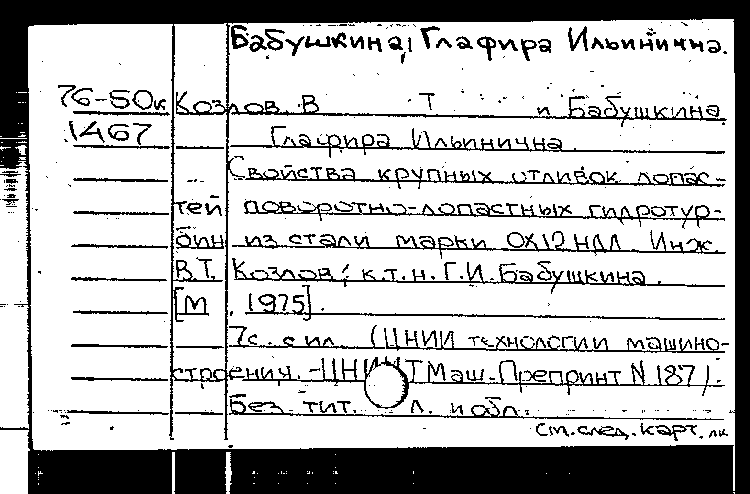 Бабушкина, Глафира Ильинична.
76-50к Козлов. В Т и Бабушкина
1467 Глафира Ильинична.
Свойства крупных отливок лопас-
тей поворотно-лопастных гидротур-
бин из стали марки 0Х12НДЛ. Инж.
В.Т. Козлов; к.т.н. Г.И. Бабушкина.
[М., 1975].
7с. с ил. (ЦНИИ технологии машино-
строения. - ЦНИИТМаш. Препринт N 187).
Без тит. л. и обл.
См. след. карт. лк